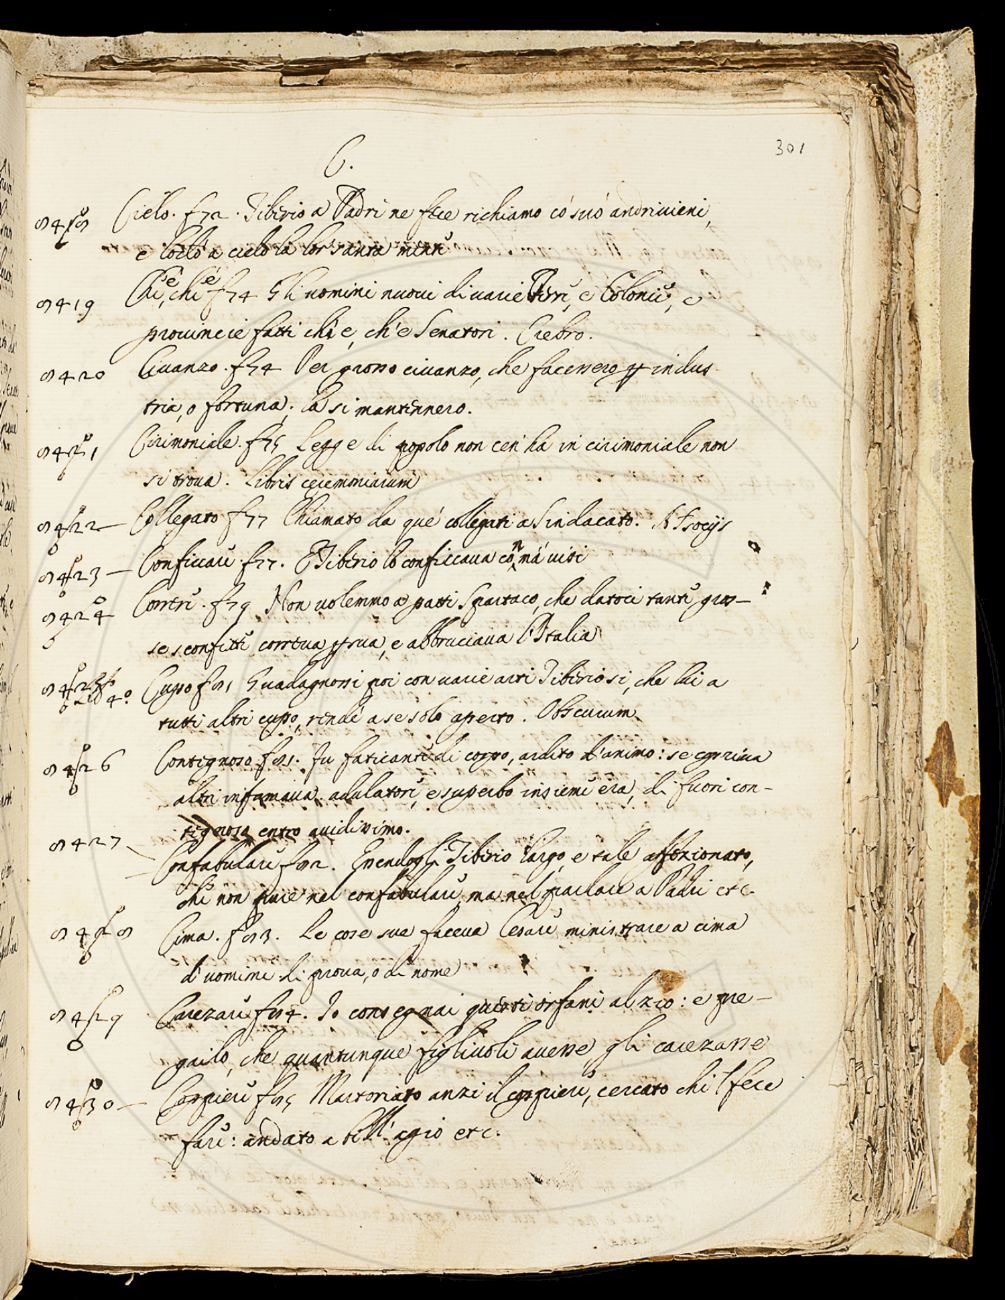 301
C.
9418 Cielo. f 72. Tiberio a Padri ne fece richiamo co suo andrivieni,
e toltò a cielo la lor santa mente
9419 Chi è, chi è f 74 Gli uomini nuovi di varie Terre, e Colonie, e
provincie fatti chi è, ch'è Senatori. Crebro.
9420 Civanzo. f 74 Per grosso civanzo, che facessero p indus
tria, o fortuna; la si mantennero.
Cirimoniale. f 75 Legge di popolo non cen'ha in cirimoniale non
si trova. Libris
9422 Collegato f 77 Chiamato da que' collegati a Sindacato. A Socijs
9423 Conficcare f 77. Tiberio lo conficcava co
9424 f 79 Non volemmo a patti Spartaco, che datoci tante gros-
se sconfitte correva e abbruciava l'Italia
Cupo f 81 Guadagnossi poi con varie arti Tiberio si, che lui a
tutti altri cupo, rendè a se solo aperto. Obscurum.
9426 Contignoso f 81. Fu faticante di corpo, ardito d'animo: se copriva
altri infamava, adulatore, e superbo insieme era, di fuori con-
tignoso entro avidissimo.
9427 Confabulare f 82. Tiberio largo e tale affezionato,
che non pare nel confabulare, ma nel parlare a Padri etc.
9428 Cima. f 83. Le cose sue faceva Cesare ministrare a cima
d'uomini di prova, o di nome
9429 Carezare f 84. Io consegnai questi orfani al zio: e pre-
gailo, che quantunque figlivoli avesse gli carezasse
9430 f 85 Martoriato anzi il, cercato chi l fece
fare: andato a bell'agio etc.